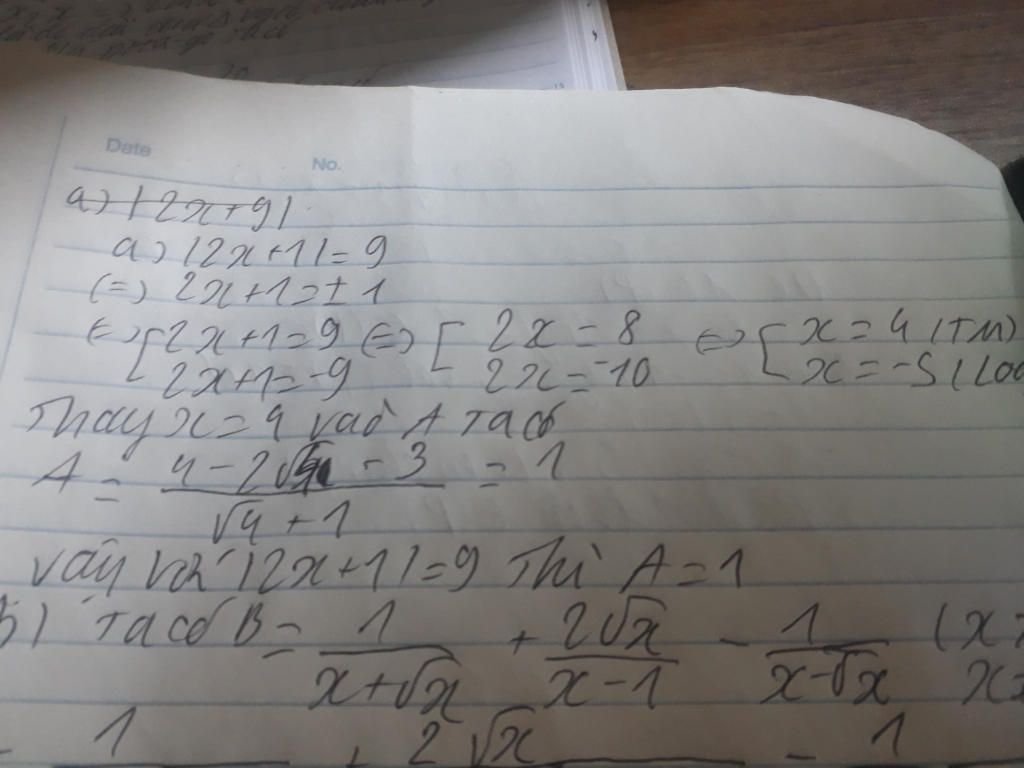 Date No.
a) |2x+9|
a) |2x+1| = 9
(=) 2x+1 = ± 1
(=) [ 2x+1 = 9 (=) [ 2x = 8 <=> [ x = 4 (TM)
2x+1 = -9 2x = -10 x = -5 (Loạ
Thay x = 4 vào A ta có
A = \frac{4 - 2\sqrt{4} - 3}{\sqrt{4} + 1} = 1
Vậy với |2x+1| = 9 Thì A = 1
b) Ta có B = \frac{1}{x+\sqrt{x}} + \frac{2\sqrt{x}}{x-1} - \frac{1}{x-\sqrt{x}} (x
x
1 + 2\sqrt{x} - 1